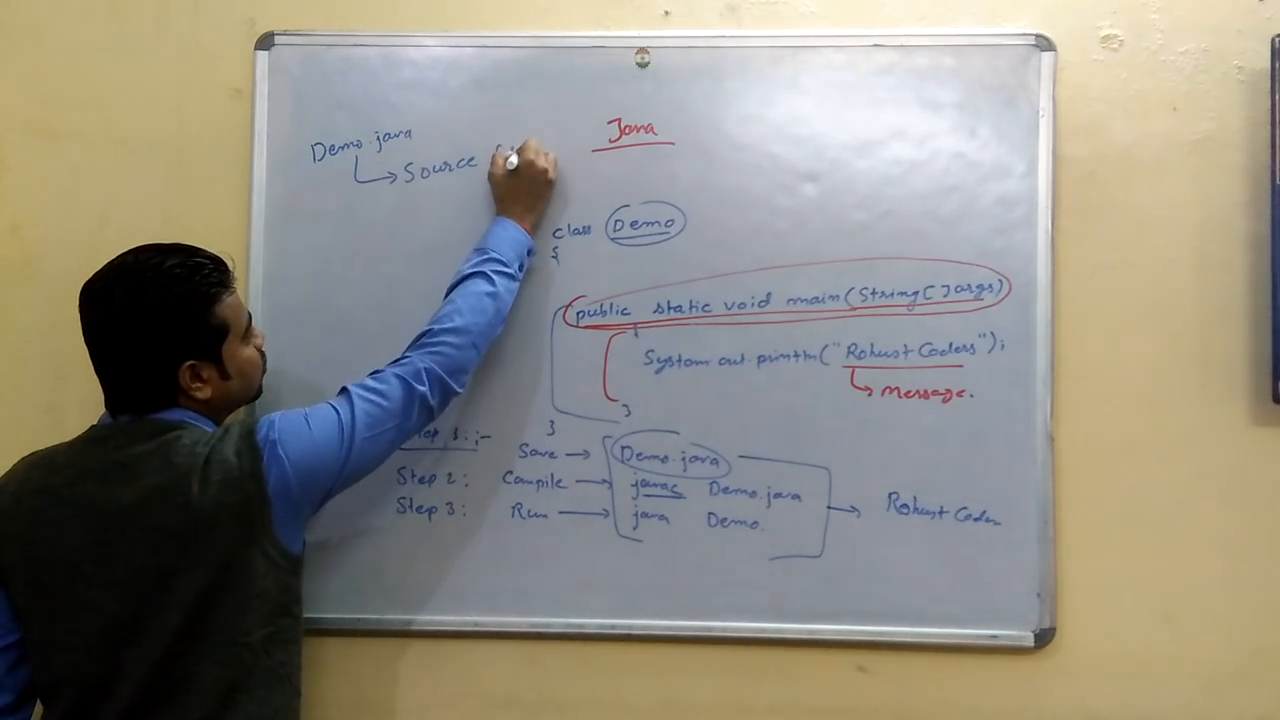 Java
Demo.java
Source
class Demo
{
public static void main(String[]args)
{
System.out.println("Robust Coders");
message.
}
}
Step 1:-
Save → Demo.java
Step 2: Compile → javac Demo.java
Step 3: Run → java Demo.
Robust Coders